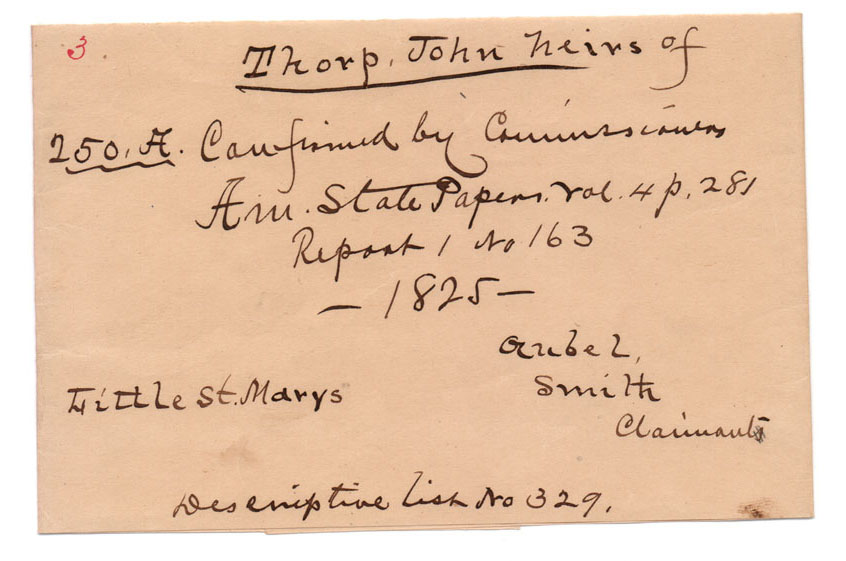 3.
Thorp, John heirs of
250. A. Confirmed by Commissioners
Am. State Papers. vol. 4 p. 281
Report 1 No 163
— 1825 —
Smith
Little St. Marys
Claimants
Descriptive list No 329.